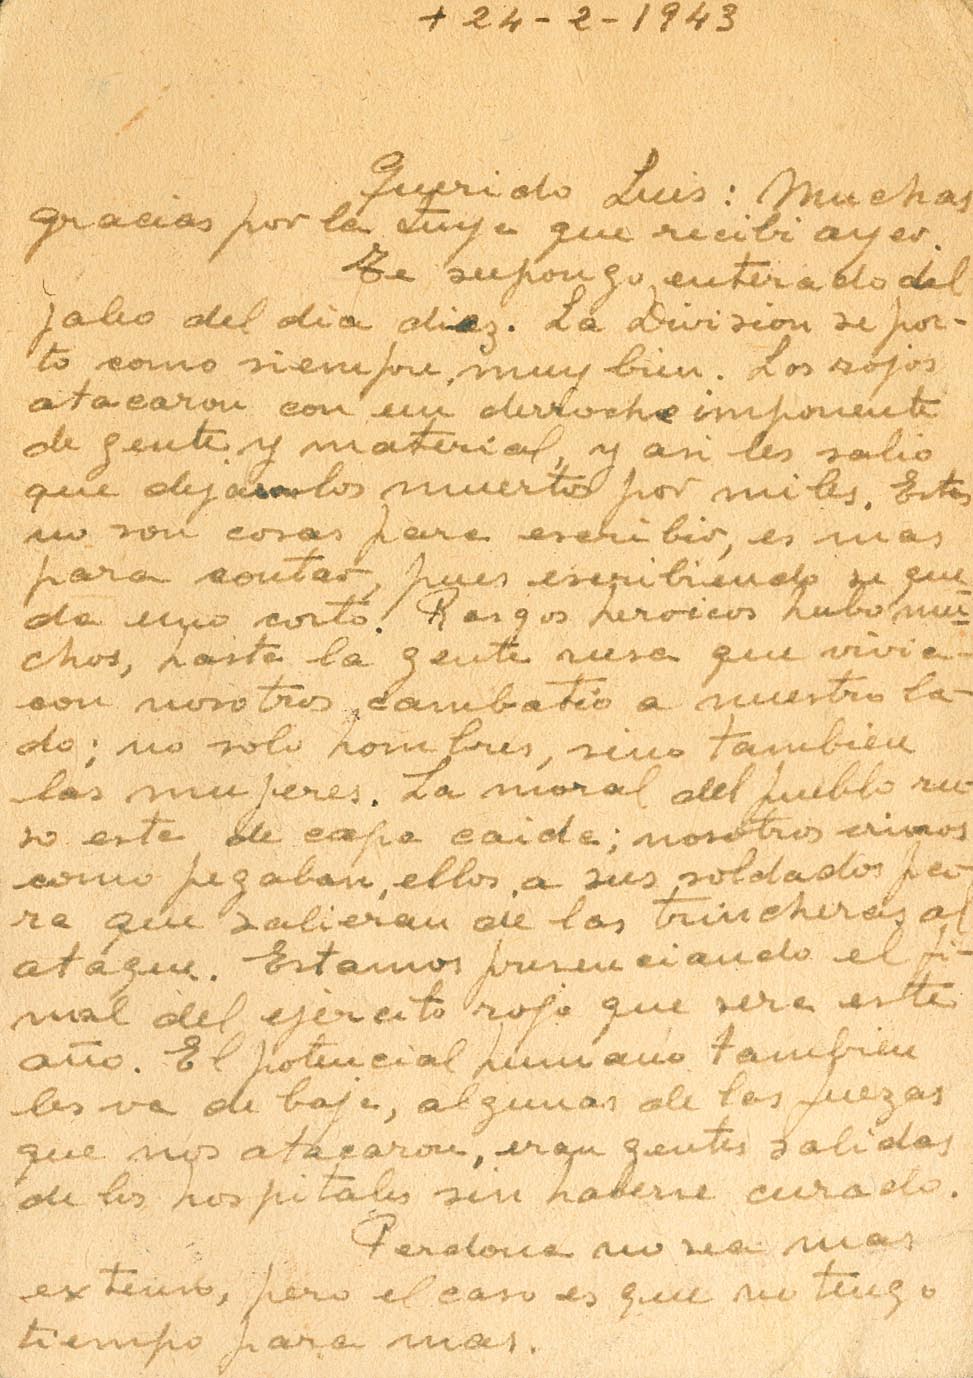 + 24 - 2 - 1943
Querido Luis: Muchas
gracias por la tuya que recibi ayer.
Te supongo enterado del
jaleo del dia diez. La Division se por-
to como siempre, muy bien. Los rojos
atacaron con un derroche imponente
de gente y material, y asi les salio
que dejaron los muertos por miles. Estas
no son cosas para escribir, es mas
para contar, pues escribiendo se que
da uno corto. Rasgos heroicos hubo mu-
chos, hasta la gente rusa que vivia
con nosotros, combatio a nuestro la-
do; no solo hombres, sino tambien
las mujeres. La moral del pueblo ru
so esta de capa caida; nosotros vimos
como pegaban, ellos, a sus soldados pa
ra que salieran de las trincheras al
ataque. Estamos presenciando el fi-
nal del ejército rojo que sera este
año. El potencial humano tambien
les va de baja, algunas de las fuezas
que nos atacaron, eran gentes salidas
de los hospitales sin haberse curado.
Perdona no sea mas
extenso, pero el caso es que no tengo
tiempo para mas.